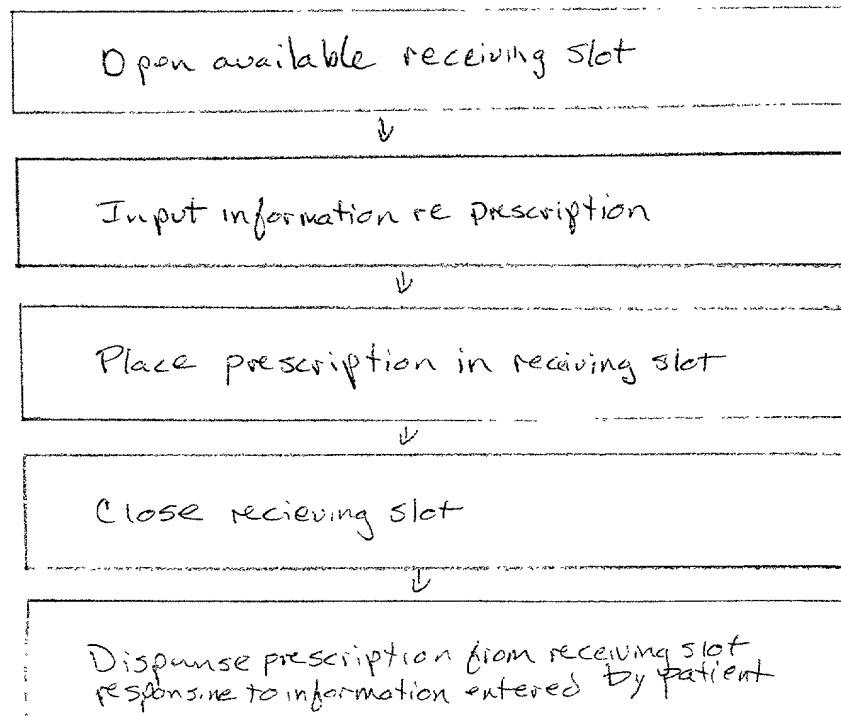 Open available receiving slot
Input information re prescription
Place prescription in receiving slot
Close recieving slot
Dispunse prescription from receiving slot
responsive to information entered by patient